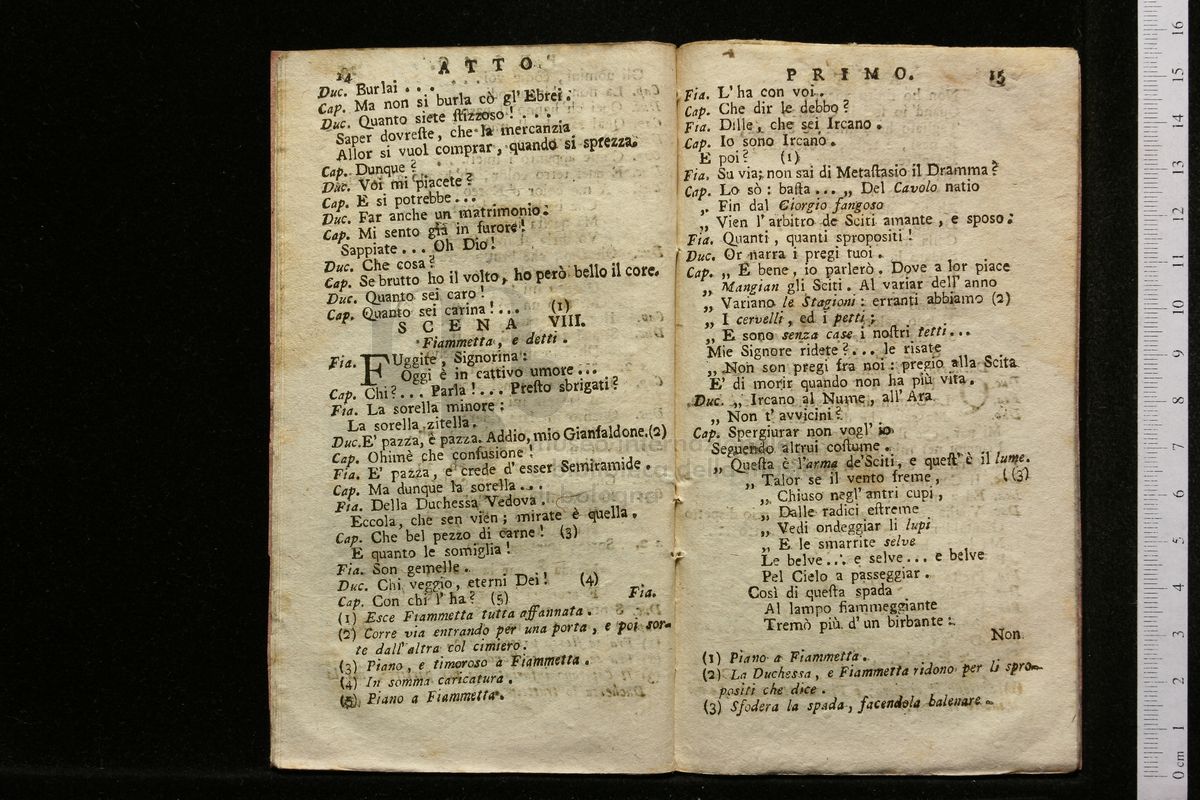 14 ATTO
Duc. Burlai . . .
Cap. Ma non si burla cò gl' Ebrei.
Duc. Quanto siete ſtizzoso! . . .
Saper dovreſte, che la mercanzia
Allor si vuol comprar, quando si sprezza.
Cap. Dunque?
Duc. Voi mi piacete?
Cap. E si potrebbe . . .
Duc. Far anche un matrimonio.
Cap. Mi sento già in furore!
Sappiate . . . Oh Dio!
Duc. Che cosa?
Cap. Se brutto ho il volto, ho però bello il core.
Duc. Quanto sei caro!
Cap. Quanto sei carina! . . . (1)
SCENA VIII.
Fiammetta, e detti.
Fia. FUggite, Signorina:
Oggi è in cattivo umore . . .
Cap. Chi? . . . Parla! . . . Preſto sbrigati?
Fia. La sorella minore;
La sorella zitella.
Duc. E' pazza, è pazza. Addio, mio Gianfaldone. (2)
Cap. Ohimè che confusione!
Fia. E' pazza, e crede d' esser Semiramide.
Cap. Ma dunque la sorella . . .
Fia. Della Duchessa Vedova.
Eccola, che sen vien; mirate è quella.
Cap. Che bel pezzo di carne! (3)
E quanto le somiglia!
Fia. Son gemelle.
Duc. Chi veggio, eterni Dei! (4)
Cap. Con chi l' ha? (5)
Fia.
(1) Esce Fiammetta tutta affannata.
(2) Corre via entrando per una porta, e poi sor-
te dall' altra col cimiero.
(3) Piano, e timoroso a Fiammetta.
(4) In somma caricatura.
(5) Piano a Fiammetta.
PRIMO. 15
Fia. L' ha con voi.
Cap. Che dir le debbo?
Fia. Dille, che sei Ircano.
Cap. Io sono Ircano.
E poi? (1)
Fia. Su via; non sai di Metaſtasio il Dramma?
Cap. Lo sò: baſta . . . „ Del Cavolo natio
„ Fin dal Giorgio fangoso
„ Vien l' arbitro de Sciti amante, e sposo.
Fia. Quanti, quanti spropositi!
Duc. Or narra i pregi tuoi.
Cap. „ E bene, io parlerò. Dove a lor piace
„ Mangian gli Sciti. Al variar dell' anno
„ Variano le Stagioni: erranti abbiamo (2)
„ I cervelli, ed i petti;
„ E sono senza case i noſtri tetti . . .
Mie Signore ridete? . . . le risate
„ Non son pregi fra noi: pregio alla Scita
E' di morir quando non ha più vita.
Duc. „ Ircano al Nume, all' Ara
„ Non t' avvicini?
Cap. Spergiurar non vogl' io
Seguendo altrui coſtume.
„ Queſta è l'arma de'Sciti, e queſt' è il lume.
„ Talor se il vento freme, (3)
„ Chiuso negl' antri cupi,
„ Dalle radici eſtreme
„ Vedi ondeggiar li lupi
„ E le smarrite selve
Le belve . . . e selve . . . e belve
Pel Cielo a passeggiar.
Così di queſta spada
Al lampo fiammeggiante
Tremò più d' un birbante:
Non
(1) Piano a Fiammetta.
(2) La Duchessa, e Fiammetta ridono per li spro-
positi che dice.
(3) Sfodera la spada, facendola balenare.
0 cm 1 2 3 4 5 6 7 8 9 10 11 12 13 14 15 16